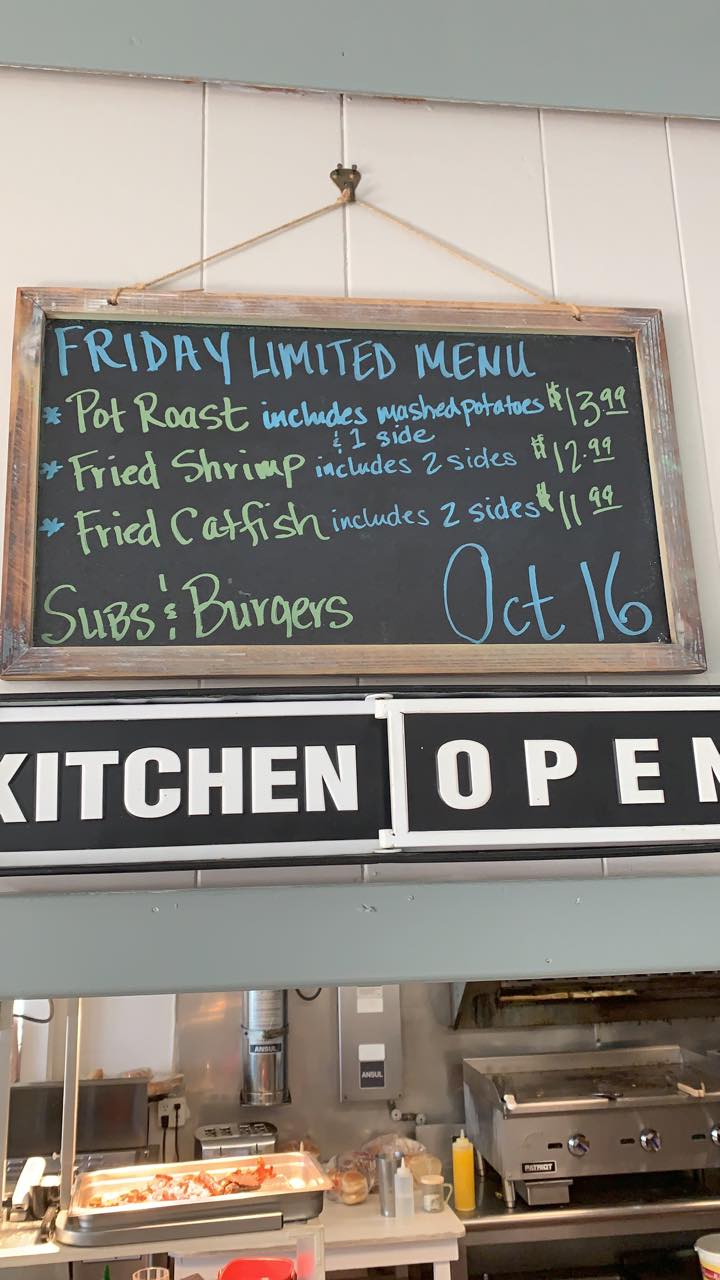 FRIDAY LIMITED MENU
* Pot Roast includes mashed potatoes $13.99
& 1 side
* Fried Shrimp includes 2 sides $12.99
* Fried Catfish includes 2 sides $11.99
Subs & Burgers Oct 16
KITCHEN OPEN
ANSUL
ANSUL
PATRIOT